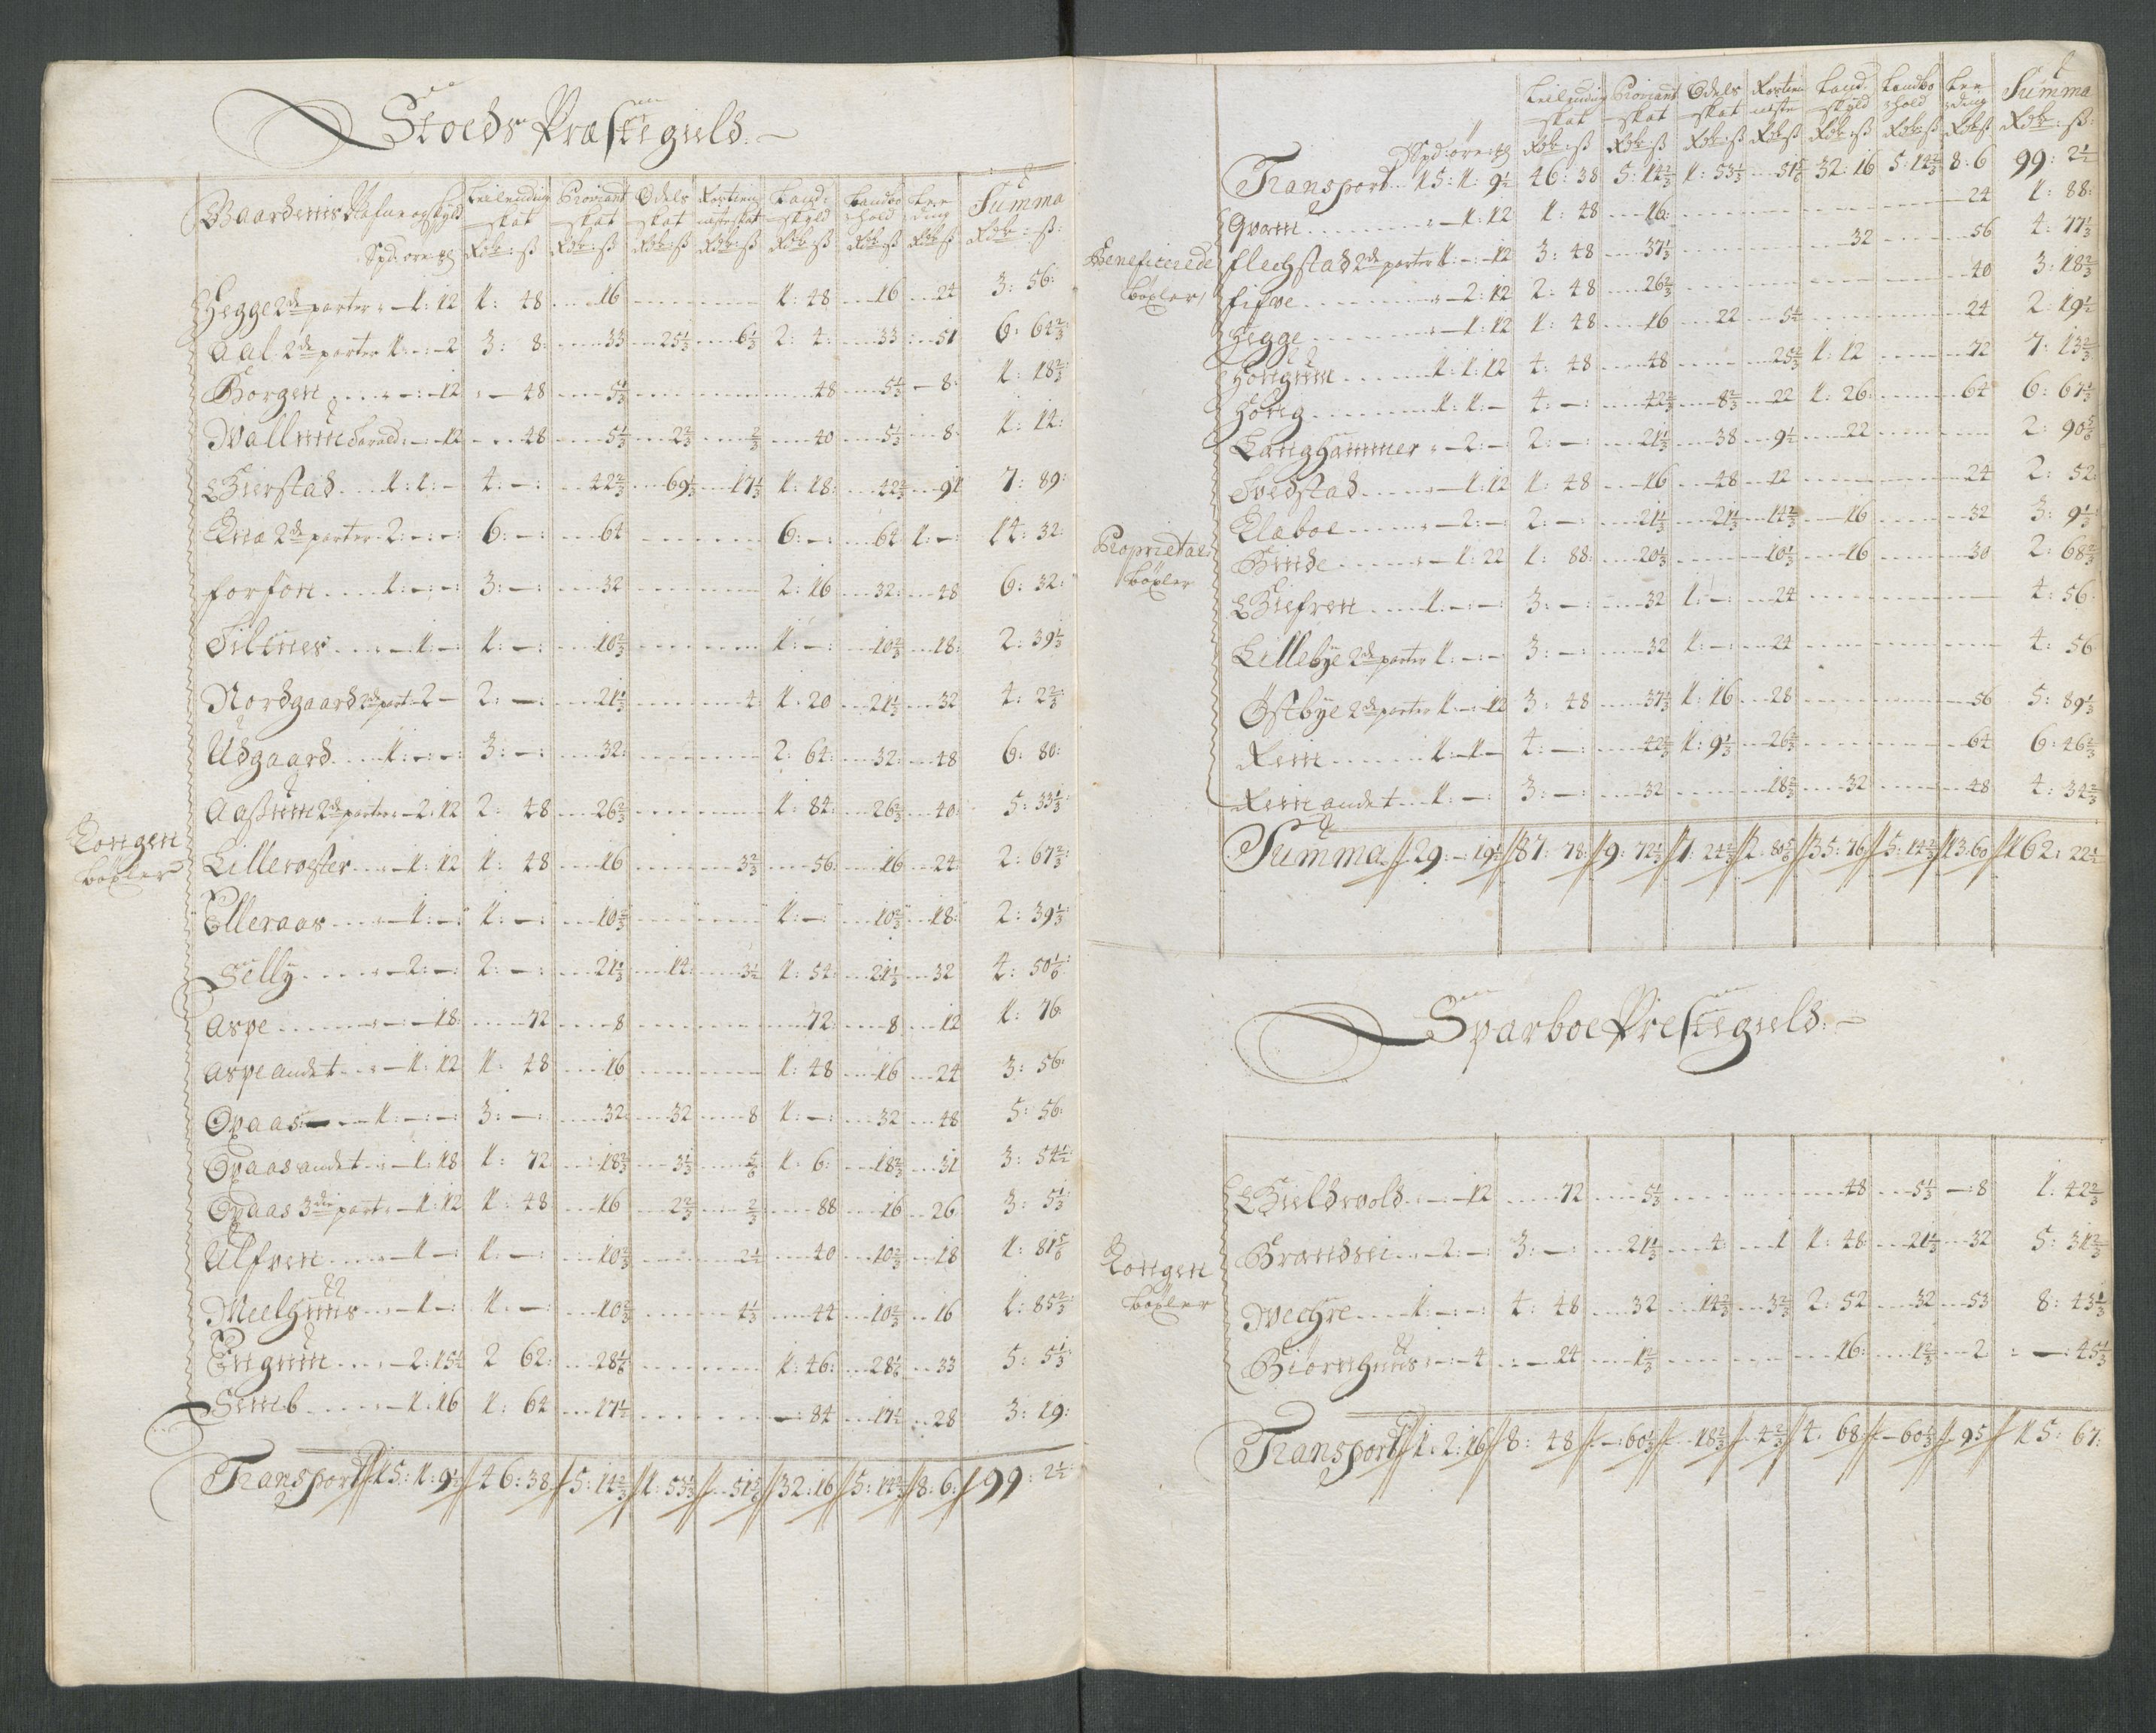 Stoeds Præstegield.
Gaardenis Nafne og skyld Leilending skat Proviant skat Odels skat Rostieniste skat Land skyld Landbo hold Leeding Summa
Spd: øre: Rdr: ß Rdr: ß Rdr: ß Rdr: ß Rdr: ß Rdr: ß Rdr ß Rdr: ß:
Hegge 2de parter - 1: 12 1: 48 16 1: 48 16 24 3: 56:
Aal 2de parter 1: -: 2 3: 8: 33 25 1/3 6 1/3 2: 4: 33 51 6: 64 2/3
Borgen -: 12 - 48 5 1/3 48 5 1/3 8: 1: 18 2/3
Wallum -: 12 48 5 1/3 2 2/3 2/3 40 5 1/3 8: 1: 12:
Gierstad 1: 1: - 4: -: 42 2/3 69 1/3 17 1/3 1: 18: 42 2/3 91 7: 89:
Qua 2de parter 2: -: -: 6: -: 64 6: -: 64 1: -: 14: 32:
forfon 1: -: -: 3: -: 32 2: 16 32: 48 6: 32:
Tiltnes - 1: - 1: -: 10 2/3 1: -: 10 2/3 18: 2: 39 1/3
Nordgaard 2de part - 2 - 2: -: 21 1/3 4: 1: 20 21 1/3 32 4: 2 2/3
Udgaard 1: -: -: 3: -: 32: 2: 64: 32: 48 6: 80:
Aassum 2de parter - 2: 12 2: 48 26 2/3 1: 84: 26 2/3 40: 5: 33 1/3
Kongen bøxler
Lillevester - 1: 12 1: 48 16 3 2/3 56 16 24: 2: 67 2/3
Elleraas - 1: -: 1: -: 10 2/3 1: -: 10 2/3 18: 2: 39 1/3
Selly - 2: -: 2: -: 21 1/3 14: 3 1/2 1: 54: 21 1/3 32 4: 50 1/6
Aspe -: 18: 72 8 72: 8 12 1: 76:
Aspe andet - 1: 12 1: 48 16 1: 48 16 24 3: 56:
Opaas 1: -: -: 3: -: 32 32 8 1: -: 32 48 5: 56:
Opaas andet - 1: 18 1: 72 18 2/3 3 1/3 5/6 1: 6: 18 2/3 31 3: 54 1/2
Opaas 3die part - 1: 12 1: 48 16 2 2/3 2/3 88 16 26 3: 5 1/3
Ulfven - 1 -: 1: -: 10 2/3 2 1/2 40 10 2/3 18 1: 81 5/6
Meelhuus - 1 -: 1: -: 10 2/3 4 1/3 44 10 2/3 16 1: 85 2/3
Engnum - 2: 15 1/2 2 62: 28 1/6 1: 46: 28 1/6 33 5: 5 1/3
Semb - 1: 16 1: 64 17 1/2 -: 84 17 1/2 28 3: 19:
Transport 15: 1: 9 1/2 46: 38 5: 14 2/3 1: 53 1/3 51 5/6 32: 16 5: 14 2/3 8: 6: 99: 2 1/2
Leilending skat Proviant skat Odels skat Rostieniste Land skyld Landbo hold Leeding Summa
Spd: øre: Rdr: ß Rdr: ß Rdr: ß Rdr ß Rdr: ß Rdr: ß Rdr ß Rdr: ß:
Transport 15: 1: 9 1/2 46: 38 5: 14 2/3 1: 53 1/3 51 5/6 32: 16 5: 14 2/3 8: 6 99: 2 1/2
Qvam - 1: 12 1: 48 16: 24 1: 88:
Beneficerede bøxler
flechstad 2de parter 1: -: 12 3: 48 37 1/3 32 56 4: 77 1/3
fifve - 2: 12 2: 48 26 2/3 40 3: 18 2/3
Hegge - 1: 12 1: 48 16 22 5 1/2 24 2: 19 1/2
Hougum 1: 1: 12 4: 48 48 25 2/3 1: 12 72 7: 13 2/3
Houg 1: 1: - 4: -: 42 2/3 8 2/3 22 1: 26 64 6: 67 1/3
Langhammer - 2: - 2: -: 21 1/3 38 9 1/2 22 2: 90 5/6
Svedstad - 1: 12 1: 48 16 48 12 24 2: 52:
Klæboe - 2: - 2: -: 21 1/3 21 1/3 14 2/3 16 32 3: 9 1/3
Proprietair bøxler
Binde - 1: 22 1: 88: 20 1/3 10 1/3 16 30 2: 68 2/3
Giefren 1: -: -: 3: -: 32 1: -: 24 4: 56:
Lillebye 2de parter 1: -: - 3: -: 32 1: -: 24 4: 56
Østbye 2de parter 1: -: 12 3: 48 37 1/3 1: 16 28 56 5: 89 1/3
Rein 1: 1 - 4: -: 42 2/3 1: 9 1/3 26 2/3 64 6: 46 2/3
Rein andet 1: -: 3: -: 32 18 2/3 32 48 4: 34 2/3
Summa 29: -: 19 1/2 87: 78: 9: 72 1/3 7: 24 2/3 2: 80 5/6 35: 76 5: 14 2/3 13: 60 162: 22 1/2
Sparboe Prestegield.
Gieldvold -: 12 72 5 1/3 48 5 1/3 -: 8 1: 42 2/3
Brandsei - 2: -: 3: -: 21 1/3 4: 1 1: 48: 21 1/3 32 5: 31 2/3
Kongen bøxler
Weehre 1: -: -: 4: 48 32 14 2/3 3 2/3 2: 52 32 53 8: 43 1/3
Biørnhuus - 4 - 24 1 2/3 16: 1 2/3 2: -: 45 1/3
Transport 1: 2: 16 8: 48 -: 60 1/3 18 2/3 4 2/3 4: 68 - 60 1/3 95 15: 67: